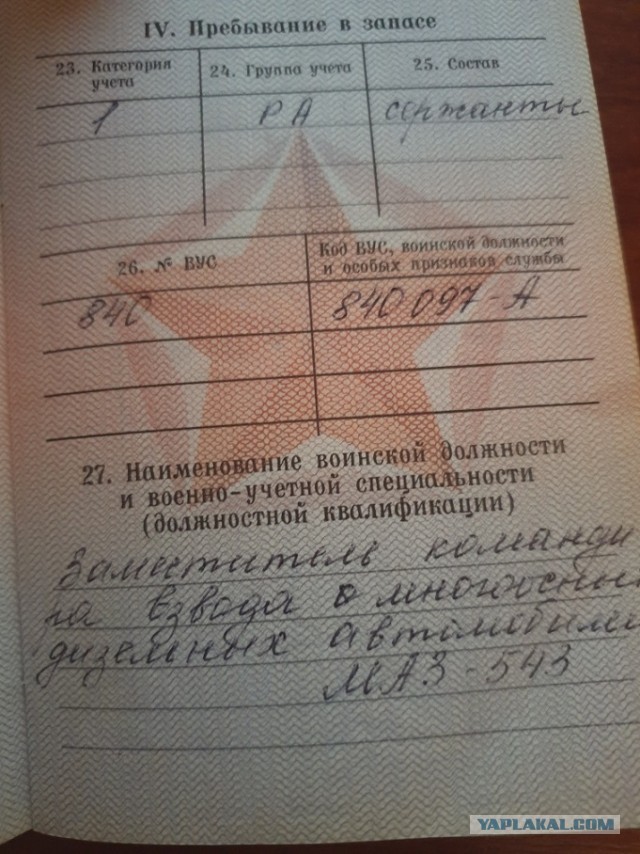 IV. Пребывание в запасе
23. Категория учета
24. Группа учета
25. Состав
1 РА сержанты
26. № ВУС
Код ВУС, воинской должности и особых признаков службы
840 840 097-А
27. Наименование воинской должности
и военно-учетной специальности
(должностной квалификации)
Заместитель команди
ра взвода о многоосны
дизельных автомобилей
МАЗ-543
YAPLAKAL.COM